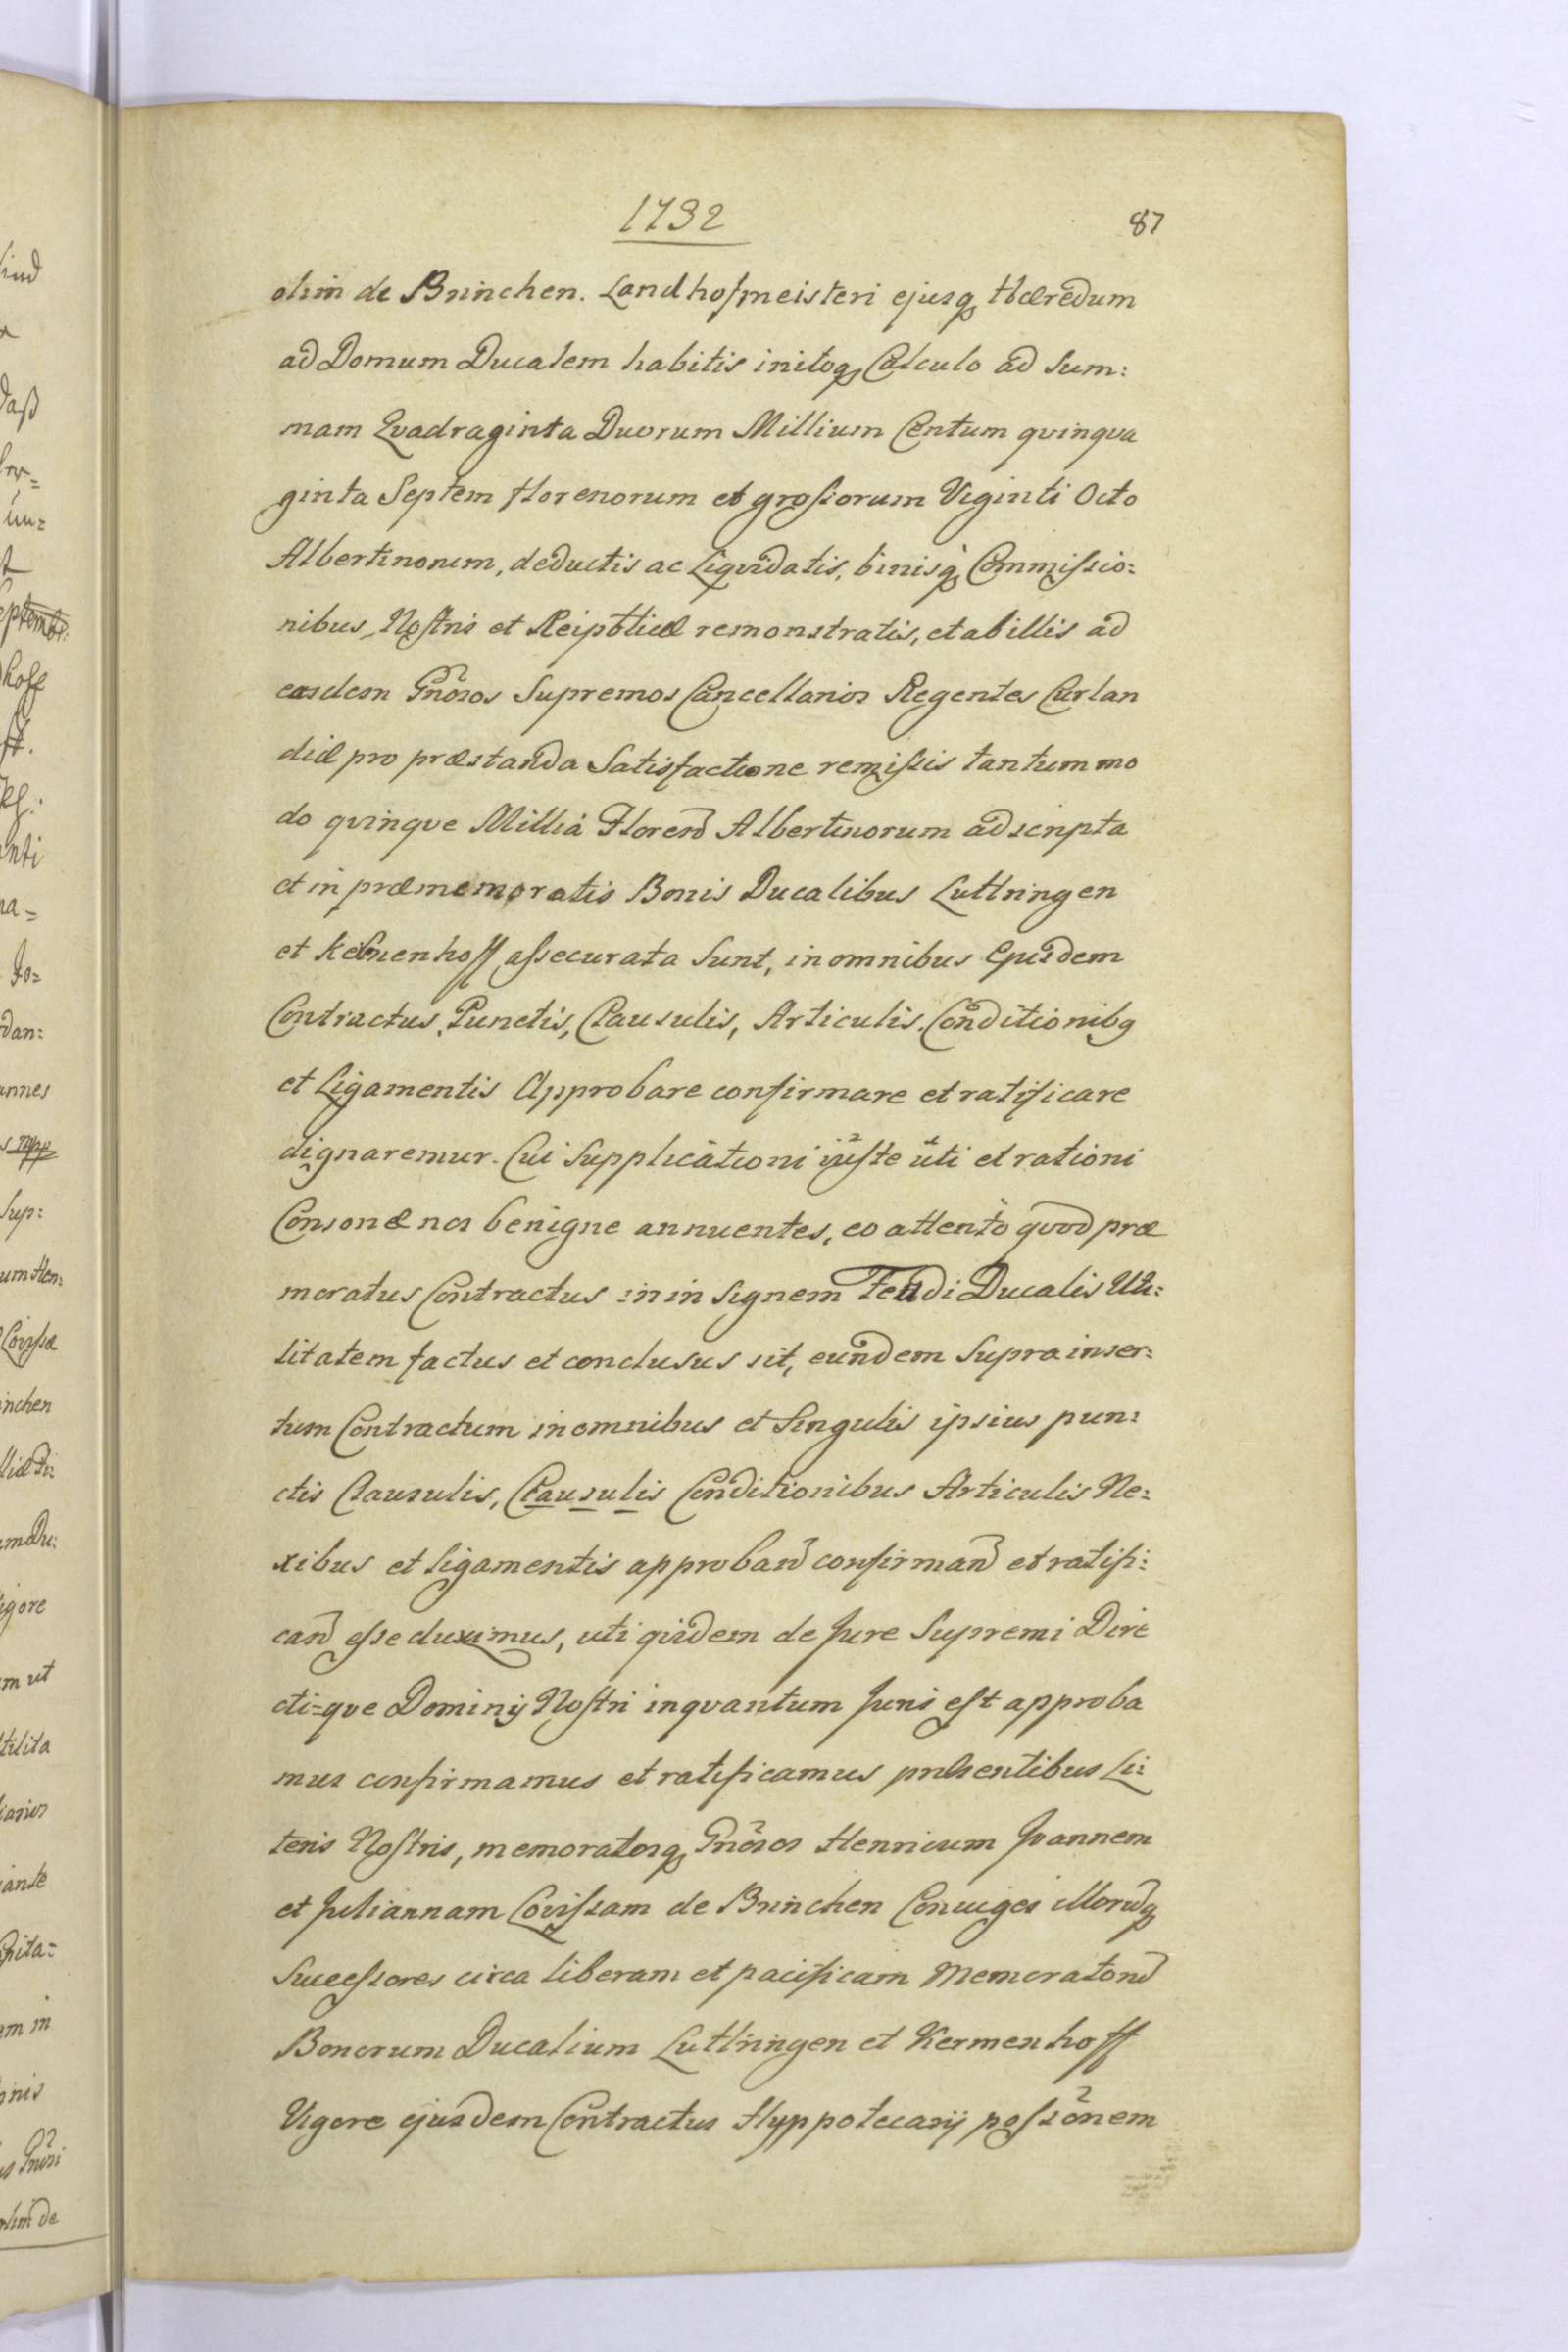 1732
87
olim de Brinchen. Landhofmeisteri ejusq Hæredum
ad Domum Ducalem habitis initoq Calculo ad Sum:
mam Qvadraginta Duorum Millium Centum qvinqva
ginta Septem florenorum et grossorum Viginti Octo
Albertinorum, deductis ac Liqvidatis, binisq Commissio:
nibus Nostris et Reipblicæ remonstratis, et ab illis ad
easdem Gnosos Supremos Cancellarios Regentes Curlan
diæ pro præstanda Satisfactione remissis tantummo
do qvinqve Millia Floren Albertinorum adscripta
et in præmemoratis Bonis Ducalibus Luttringen
et Kermenhoff assecurata Sunt, in omnibus Ejusdem
Contractus, Punctis, Clausulis, Articulis. Conditionibq
et Ligamentis Approbare confirmare et ratificare
dignaremur. Cui Supplicationi juste uti et rationi
Consonæ nos benigne annuentes, eo attento qvod præ
moratus Contractus in insignem Feudi Ducalis Uti:
litatem factus et conclusus sit, eundem Supra inser:
tum Contractum in omnibus et Singulis ipsius pun:
ctis Clausulis, Clausulis Conditionibus Articulis Ne:
xibus et ligamentis approband confirmand et ratifi:
cand esse duximus, uti qvidem de Jure Supremi Dire
cti=qve Dominij Nostri inqvantum Juris est approba
mus confirmamus et ratificamus præsentibus Li:
teris Nostris, memoratosq Gnosos Henricum Joannem
et Juliannam Lovissam de Brinchen Conuiges illorumq
Successores circa liberam et pacificam Memorator
Bonorum Ducalium Luttringen et Kermenhoff
Vigore ejusdem Contractus Hyppotecarij possonem